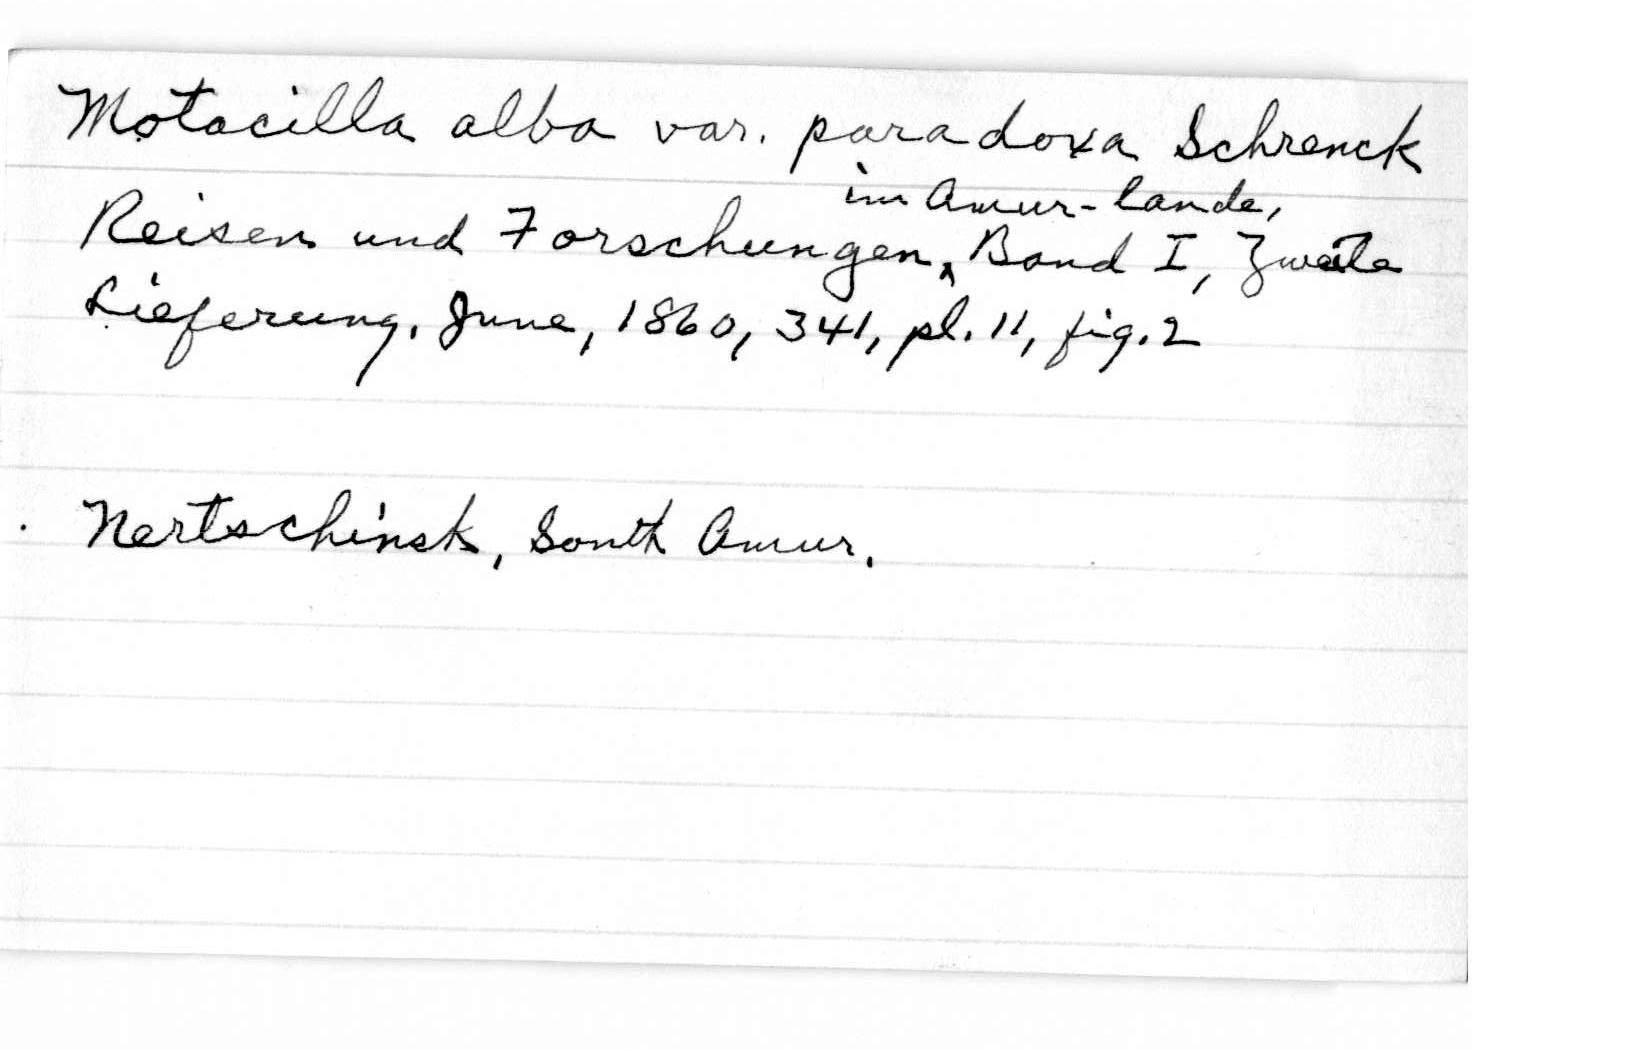 Motacilla alba var. paradoxa Schrenck
im Amur-lande,
Reisen und Forschungen, Band I, Zweite
Lieferung. June, 1860, 341, pl. 11, fig. 2
Nertschinsk, South Amur.